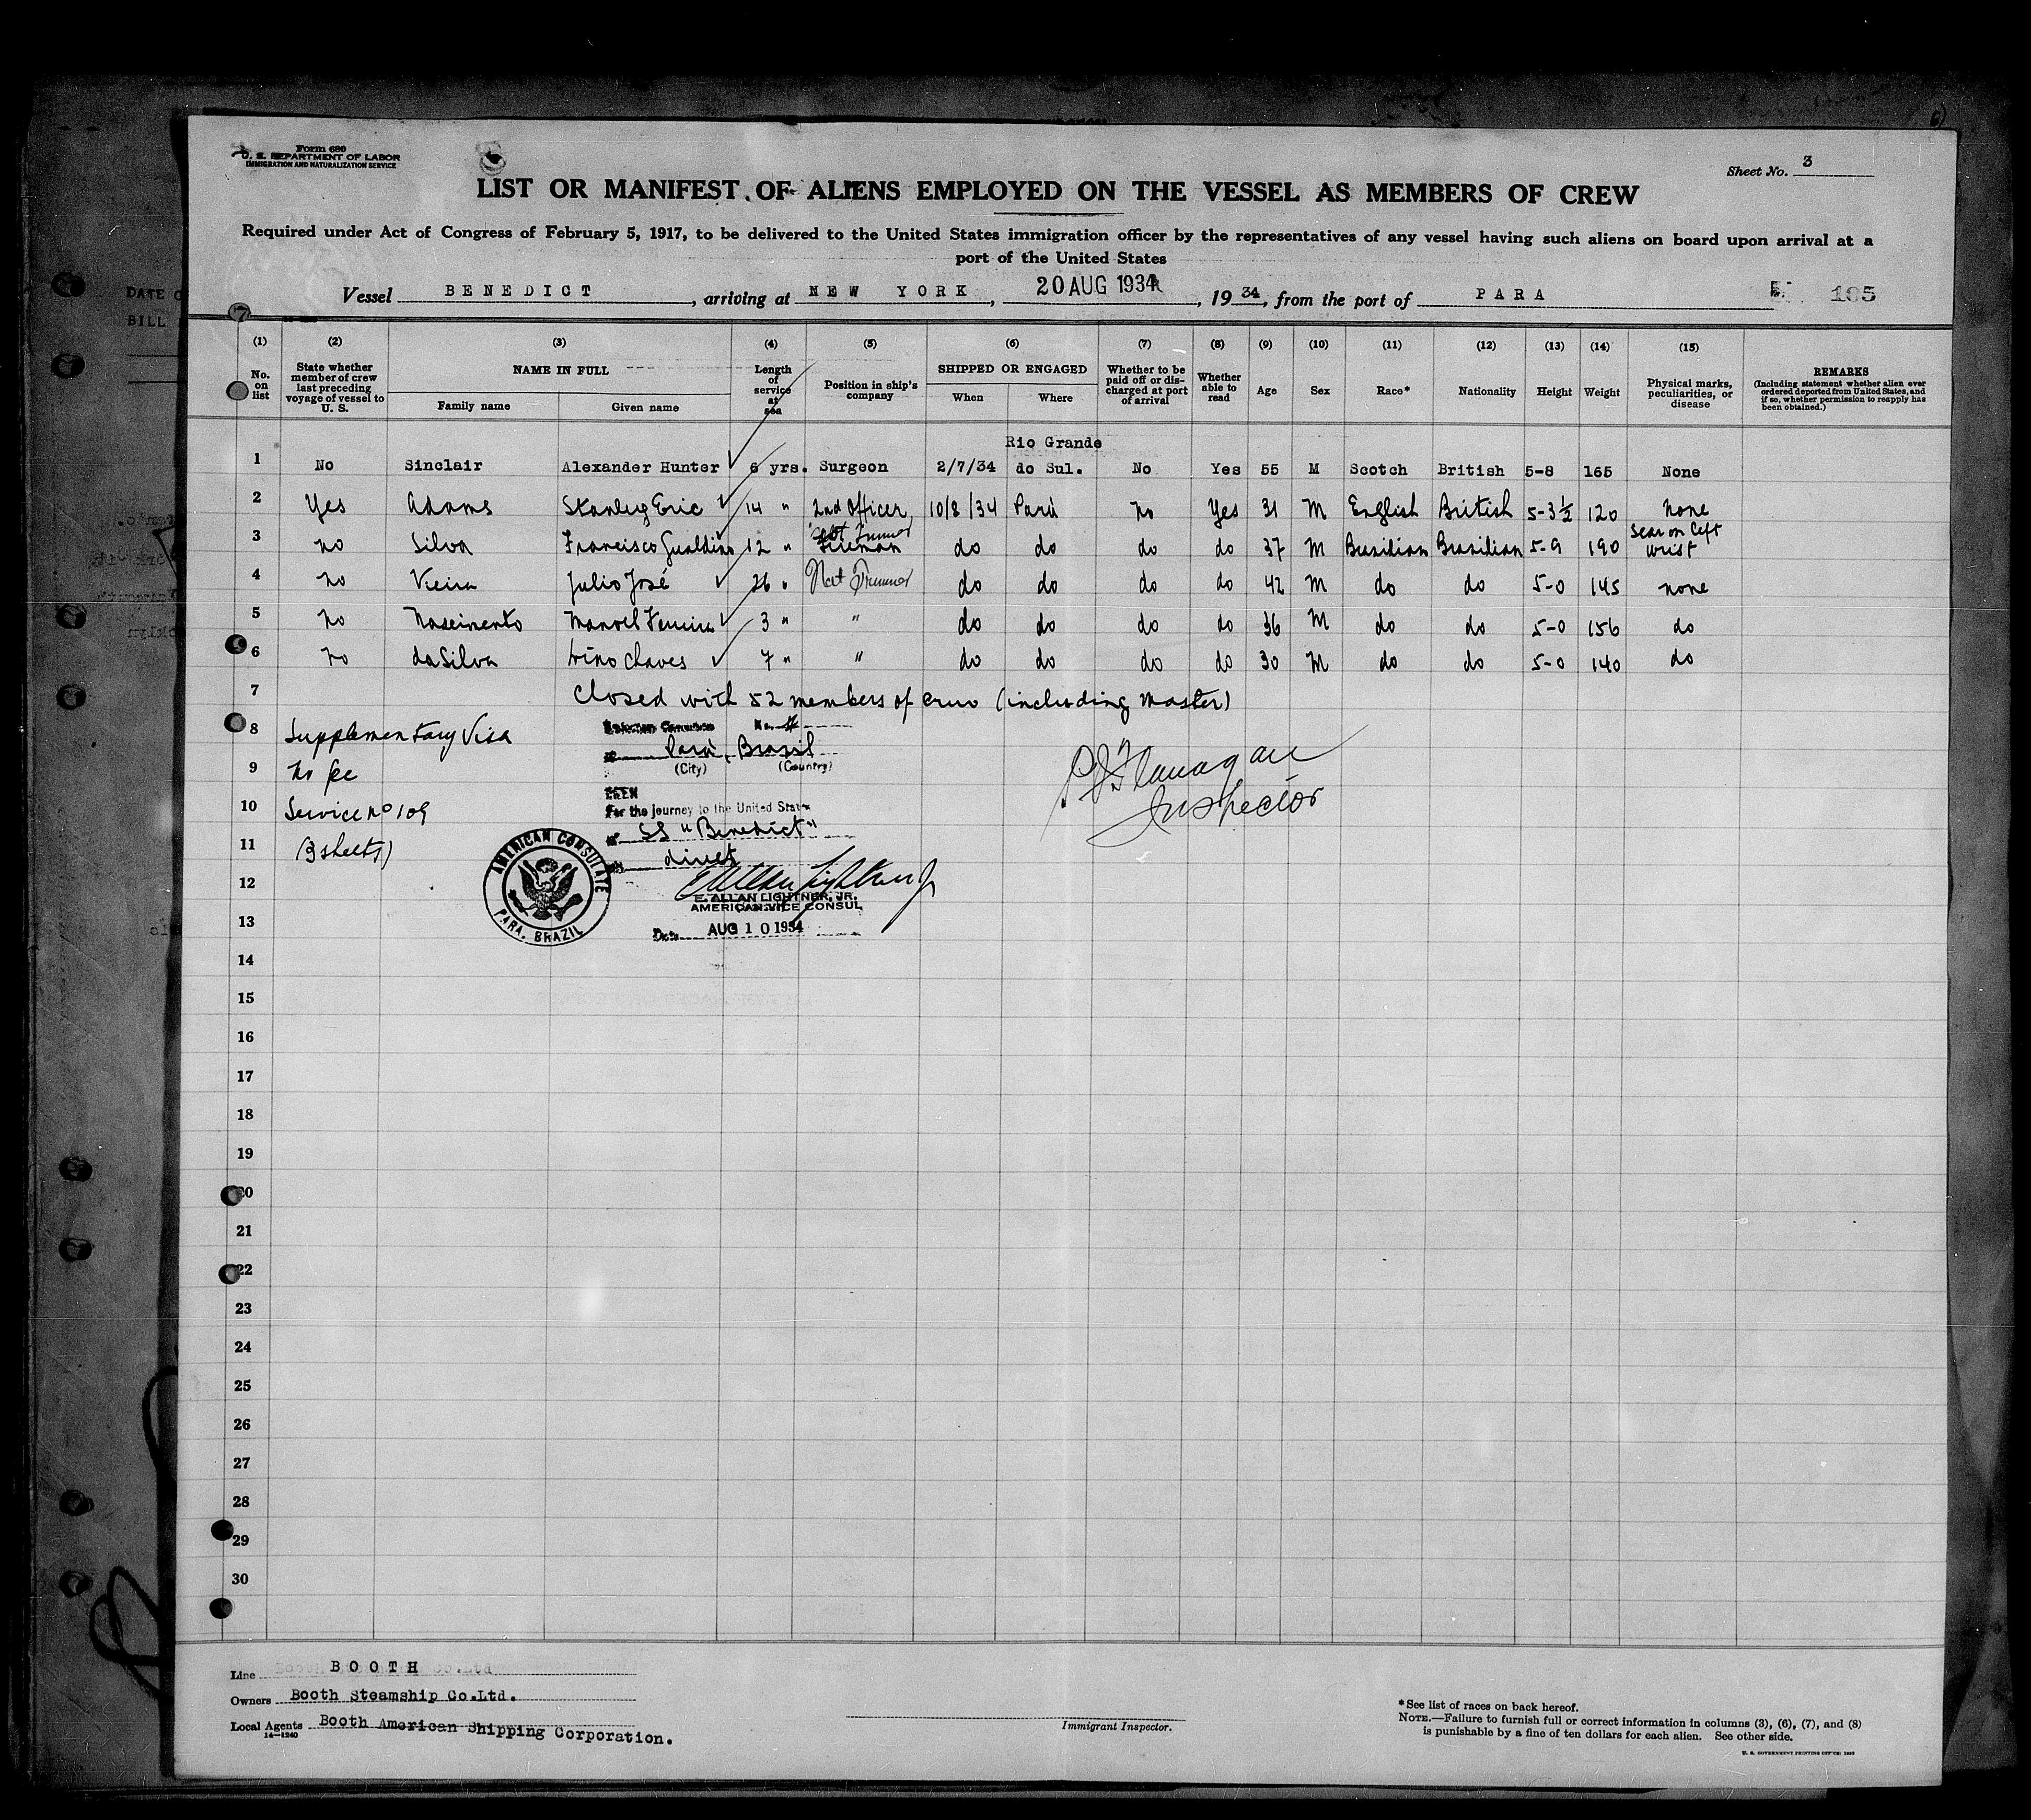 Form 680
U. S. DEPARTMENT OF LABOR
IMMIGRATION AND NATURALIZATION SERVICE
Sheet No. 3
LIST OR MANIFEST OF ALIENS EMPLOYED ON THE VESSEL AS MEMBERS OF CREW
Required under Act of Congress of February 5, 1917, to be delivered to the United States immigration officer by the representatives of any vessel having such aliens on board upon arrival at a
port of the United States
Vessel BENEDICT, arriving at NEW YORK, 20 AUG 1934, 1934, from the port of PARA 185
(1) (2) (3) (4) (5) (6) (7) (8) (9) (10) (11) (12) (13) (14) (15)
No. on list State whether member of crew last preceding voyage of vessel to U. S. NAME IN FULL Family name Given name Length of service at sea Position in ship's company SHIPPED OR ENGAGED When Where Whether to be paid off or discharged at port of arrival Whether able to read Age Sex Race* Nationality Height Weight Physical marks, peculiarities, or disease REMARKS (Including statement whether alien ever ordered deported from United States, and if so, whether permission to reapply has been obtained.)
1 No Sinclair Alexander Hunter 6 yrs. Surgeon 2/7/34 Rio Grande do Sul. No Yes 55 M Scotch British 5-8 165 None
2 Yes Adams Stanley Eric 14 " 2nd Officer 10/8/34 Pará no Yes 31 M English British 5-3½ 120 none
3 no Silva Francisco Gualdino 12 " Fireman do do do do 37 M Brazilian Brazilian 5-9 190 Scar on left wrist
4 no Vieira Julio José 26 " Trimmer do do do do 42 M do do 5-0 145 none
5 no Nascimento Manoel Ferreira 3 " " do do do do 36 M do do 5-0 156 do
6 no da Silva Irino Chaves 7 " " do do do do 30 M do do 5-0 140 do
7 Closed with 52 members of crew (including Master)
8 Supplementary Visa
9 No fee
10 Service no 109
11 (3 sheets)
Pará, Brazil
(City) (Country)
SEEN
For the journey to the United States
SS "Benedict"
direct
E. ALLAN LIGHTNER, JR.
AMERICAN VICE CONSUL
Date AUG 10 1934
AMERICAN CONSULATE
PARA, BRAZIL
P J Flanagan
Inspector
12
13
14
15
16
17
18
19
20
21
22
23
24
25
26
27
28
29
30
Line BOOTH
Owners Booth Steamship Co.Ltd.
Local Agents Booth American Shipping Corporation.
14—1240
Immigrant Inspector.
*See list of races on back hereof.
NOTE.—Failure to furnish full or correct information in columns (3), (6), (7), and (8)
is punishable by a fine of ten dollars for each alien. See other side.
DATE O
BILL